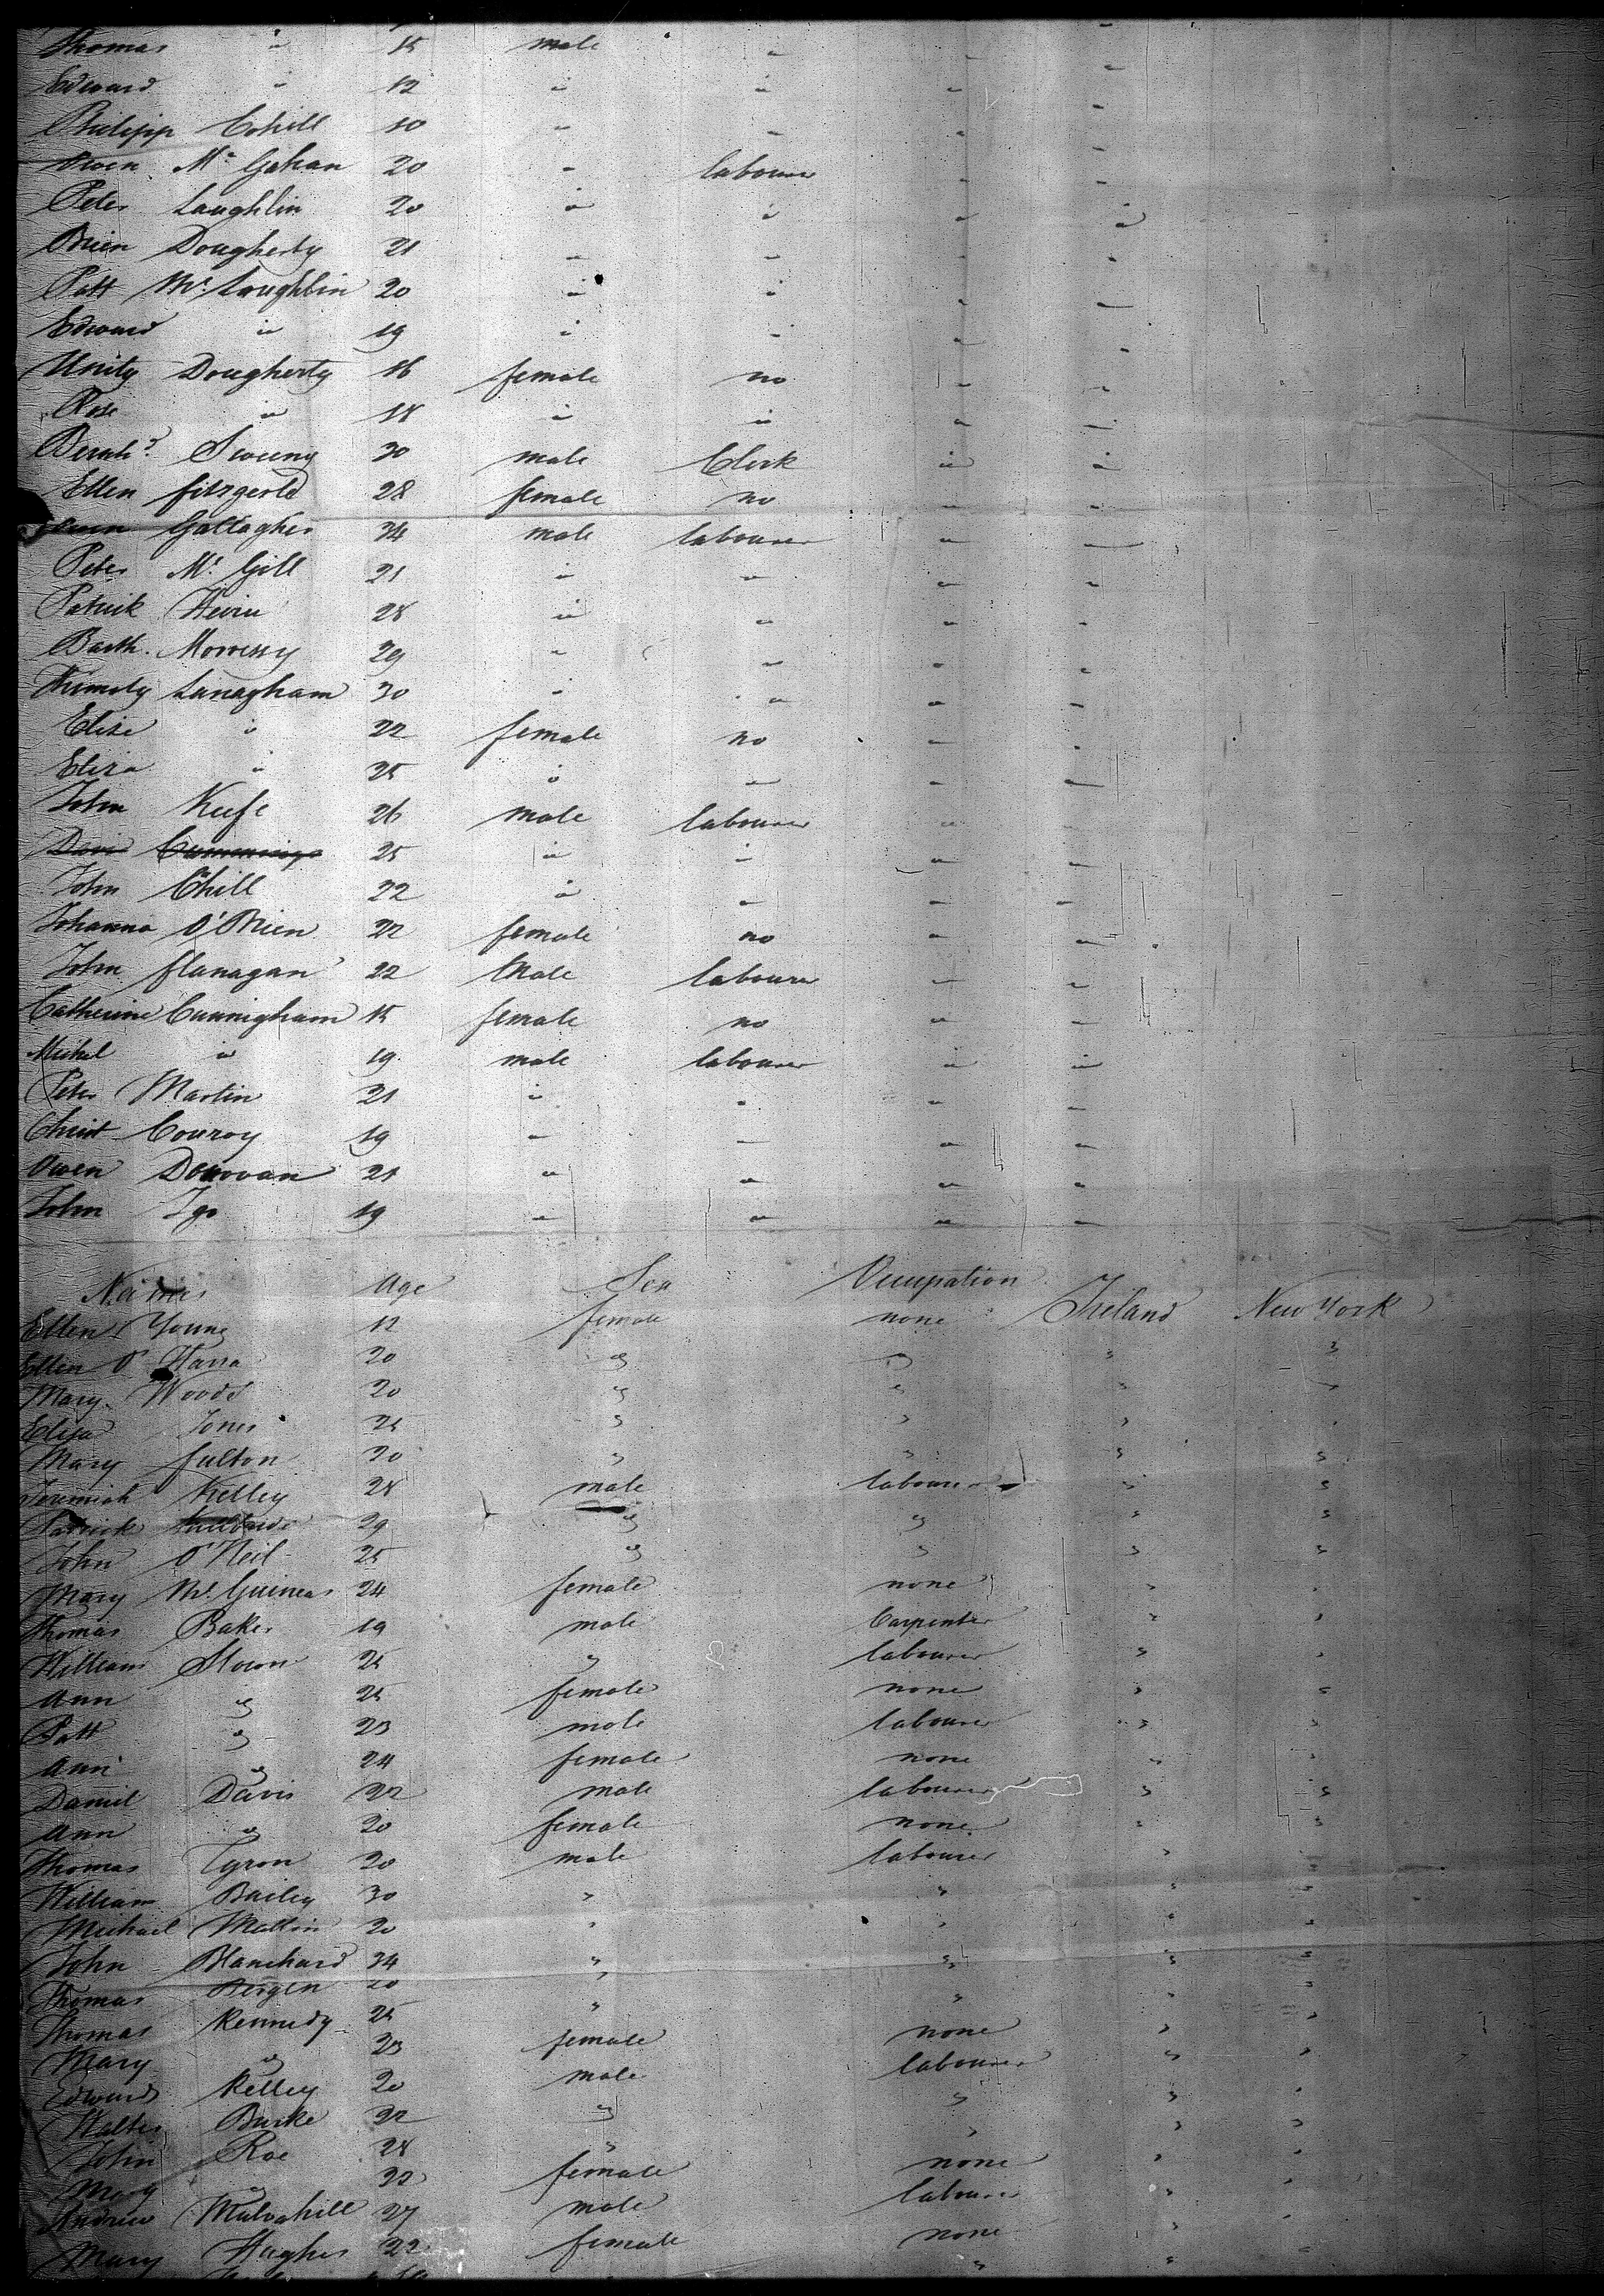 Thomas " 15 male " " "
Edward " 12 " " " "
Philipp Cohill 10 " " " "
Owen Mc Gahan 20 " labourer " "
Peter Laughlin 20 " " " "
Brien Dougherty 21 " " " "
Patt Mc Loughlin 20 " " " "
Edward " 19 " " " "
Unity Dougherty 16 female no " "
Rose " 18 " " " "
Sweeny 30 male Clerk " "
Ellen fitzgerld 28 female no " "
Gallagher 34 male labourer " "
Peter Mc Gill 21 " " " "
Patrick 28 " " " "
Barth. Morrissy 29 " " " "
Lanagham 30 " " " "
Elise " 22 female no " "
Eliza " 25 " " " "
John Keefe 26 male labourer " "
David Cummings 25 " " " "
John 22 " " " "
Johanna O'Brien 22 female no " "
John flanagan 22 Male labourer " "
Catherine Cunnigham 15 female no " "
Michel " 19 male labourer " "
Peter Martin 21 " " " "
Christ Conroy 19 " " " "
Owen Donovan 21 " " " "
John Igo 19 " " " "
Names Age Sex Occupation
Ellen Young 12 female none Ireland New York
Ellen O' Hara 20 " " " "
Mary Woods 20 " " " "
Eliza Jones 25 " " " "
Mary fulton 20 " " " "
Jeremiah Kelley 28 male labourer " "
Patrick 29 " " " "
John O'Neil 25 " " " "
Mary Mc Guineas 24 female none " "
Thomas Baker 19 male Carpenter " "
William Slown 25 " labourer " "
Ann " 25 female none " "
Patt " 23 male labourer " "
Ann " 24 female none " "
Daniel Davis 22 male labourer " "
Ann " 20 female none " "
Thomas Tyron 20 male labourer " "
William Bailey 30 " " " "
Michael Mattin 20 " " " "
John Blanchard 34 " " " "
Thomas Bergen 20 " " " "
Thomas Kennedy 25 " " " "
Mary " 23 female none " "
Edward Kelley 20 male labourer " "
Walter Burke 22 " " " "
John Roe 28 " " " "
Mary " 22 female none " "
Andrew Mulvahill 27 male labourer " "
Mary Hughes 22 female none " "